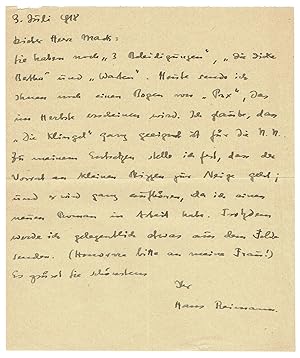 3. Juli 1918
Lieber Herr Mack:
Sie haben noch "3 Beleidigungen", "die dicke
Bertha" und "Warten". Heute sende ich
Ihnen noch einen Bogen von "Pax", das
im Herbste erscheinen wird. Ich glaube, dass
"Die Klingel" ganz geeignet ist für die N. N.
Zu meinem Entsetzen stelle ich fest, dass der
Vorrat an kleinen Skizzen zur Neige geht;
und es wird ganz aufhören, da ich einen
neuen Roman in Arbeit habe. Trotzdem
werde ich gelegentlich etwas aus dem Felde
senden. (Honorare bitte an meine Frau!)
Es grüsst Sie schönstens
Ihr
Hans Reimann.